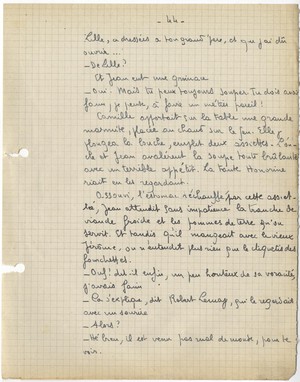 - 44 -
Lille, adressées à ton grand'père, et que j'ai dû
ouvrir...
- De Lille ?
Et Jean eut une grimace
- Oui. Mais tu peux toujours souper. Tu dois avoir
faim, je pense, à faire un métier pareil !
Camille apportait sur la table une grande
marmite, placée au chaud sur le feu. Elle
plongea la louche, emplit deux assiettes.
et Jean avalèrent la soupe toute brûlante
avec un terrible appétit. La tante Honorine
riait en les regardant.
Assouvi, l'estomac réchauffé par cette assiet-
tée, Jean attendit sans impatience la tranche de
viande froide et les pommes de terre qu'on
servit. Et tandis qu'il mangeait avec le vieux
Jérôme, on n'entendit plus rien que le cliquetis des
fourchettes.
- Ouf ! dit-il enfin, un peu honteux de sa voracité,
j'avais faim !
- Ça s'explique, dit Robert Lenoay, qui le regardait
avec un sourire
- Alors ?
- Hé bien, il est venu pas mal de monde, pour te
voir.